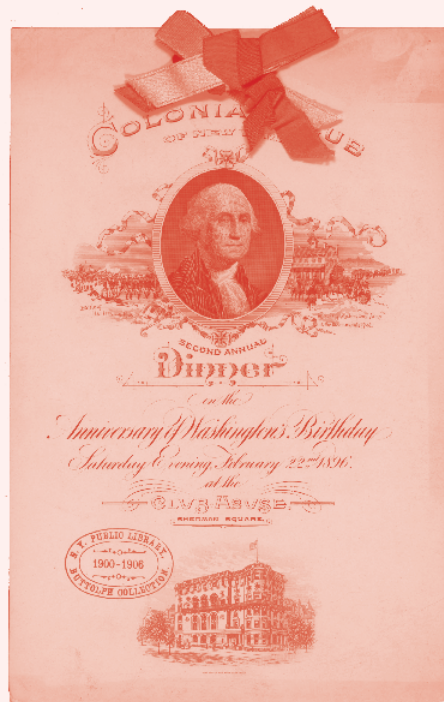 COLONIA UB
OF NEW
SECOND ANNUAL
Dinner
on the
Anniversary of Washington's Birthday
Saturday Evening, February 22nd 1896.
at the
CLUB HOUSE
SHERMAN SQUARE.
N. Y. PUBLIC LIBRARY,
1900-1906
BUTTOLPH COLLECTION.